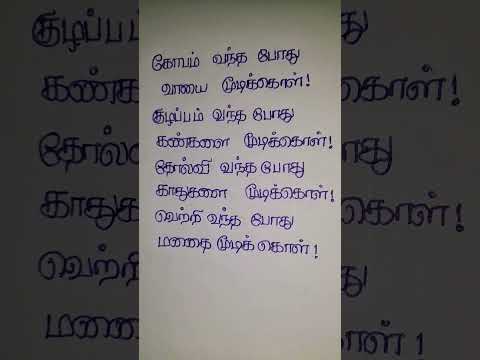 கோபம் வந்த போது
வாயை மூடிக்கொள்!
குழப்பம் வந்த போது
கண்களை மூடிக்கொள்!
தோல்வி வந்த போது
காதுகளை மூடிக்கொள்!
வெற்றி வந்த போது
மனதை மூடிக் கொள்!